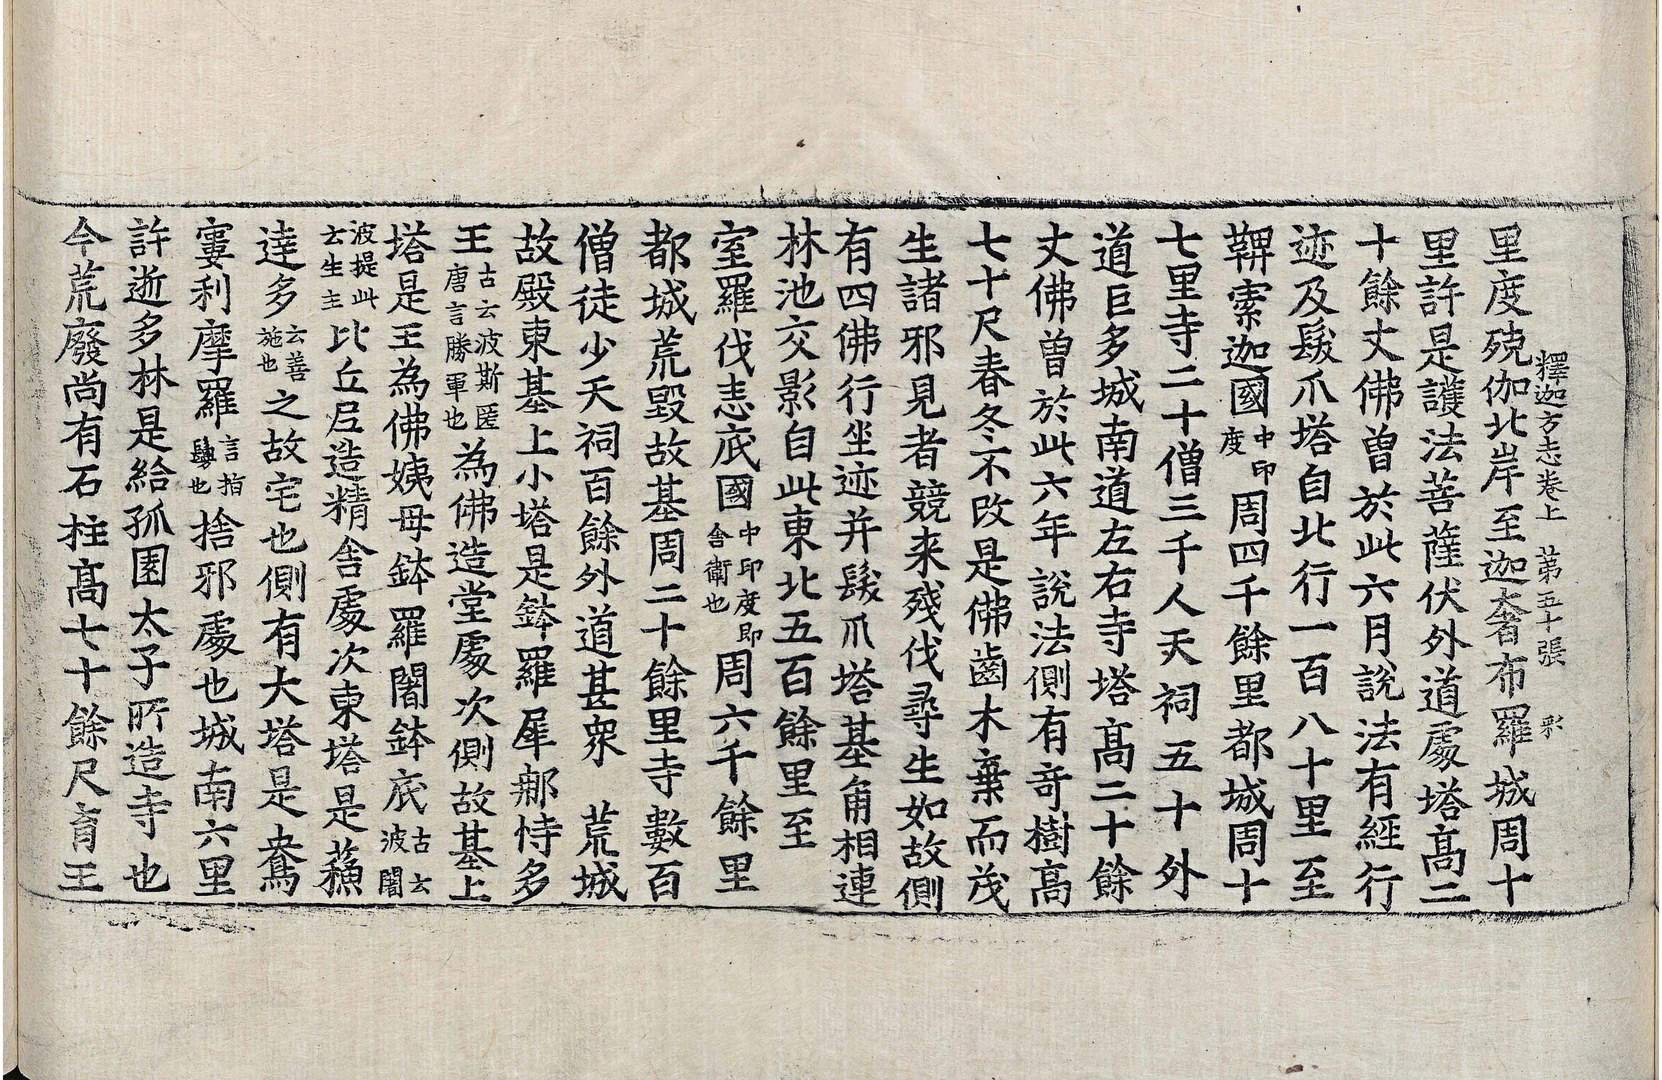 釋迦方志卷上　第五十張　彩
里度殑伽北岸至迦奢布羅城周十
里許是護法菩薩伏外道處塔高二
十餘丈佛曾於此六月說法有經行
迹及髮爪塔自北行一百八十里至
鞞索迦國中印度周四千餘里都城周十
七里寺二十僧三千人天祠五十外
道巨多城南道左右寺塔高二十餘
丈佛曾於此六年說法側有奇樹高
七十尺春冬不改是佛齒木棄而茂
生諸邪見者競来殘伐尋生如故側
有四佛行坐迹并髮爪塔基角相連
林池交影自此東北五百餘里至
室羅伐悉底國中印度即舍衛也周六千餘里
都城荒毀故基周二十餘里寺數百
僧徒少天祠百餘外道甚衆　荒城
故殿東基上小塔是鉢羅犀郍恃多
王古云波斯匿唐言勝軍也為佛造堂處次側故基上
塔是王為佛姨母鉢羅闍鉢底古云波闍
波提此云生主比丘尼造精舍處次東塔是蘓
達多云善施也之故宅也側有大塔是鴦
寠利摩羅言指鬘也捨邪處也城南六里
許逝多林是給孤園太子所造寺也
今荒廢尚有石柱高七十餘尺育王